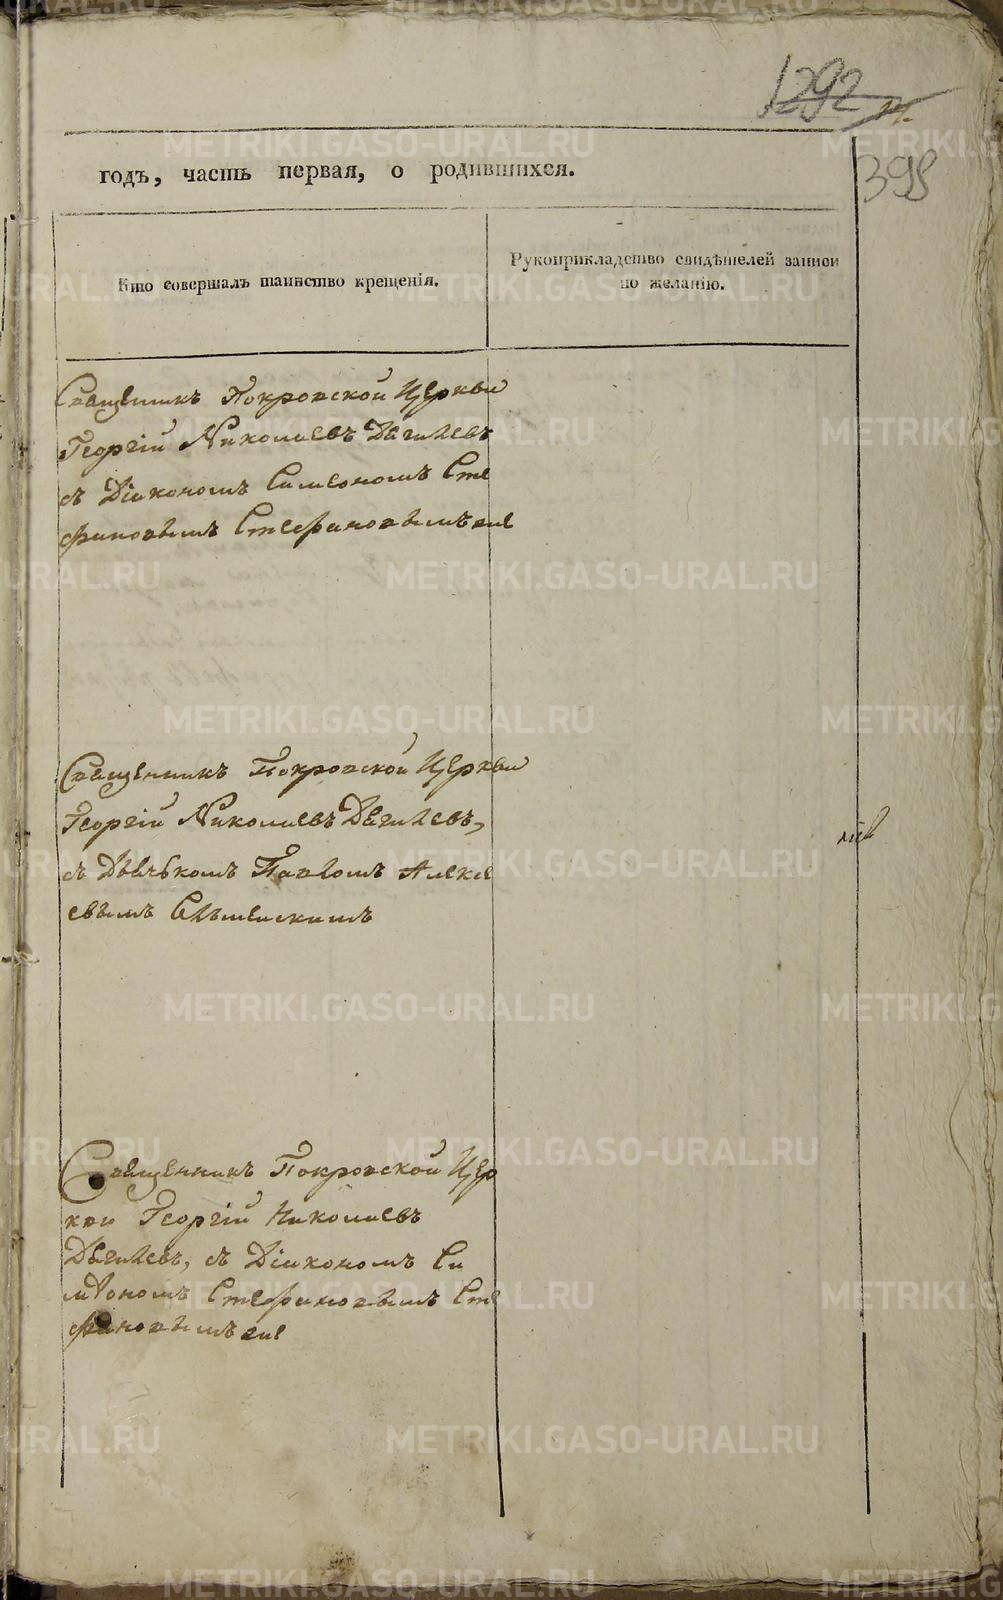 1292
398
годъ, часть первая, о родившихся.
Кто совершалъ таинство крещенія.
Рукоприкладство свидѣтелей записи
по желанію.
Священникъ Покровской Церкви
Георгій Николаевъ Дягилевъ
съ Діакономъ Симеономъ Сте
фановымъ Стефановымъ
Священникъ Покровской Церкви
Георгій Николаевъ Дягилевъ,
съ Дьячькомъ Павломъ Алексе
евымъ
Священникъ Покровской Цер
кви Георгій Николаевъ
Дягилевъ, съ Діакономъ Си
меономъ Стефановымъ Сте
фановымъ
METRIKI.GASO-URAL.RU